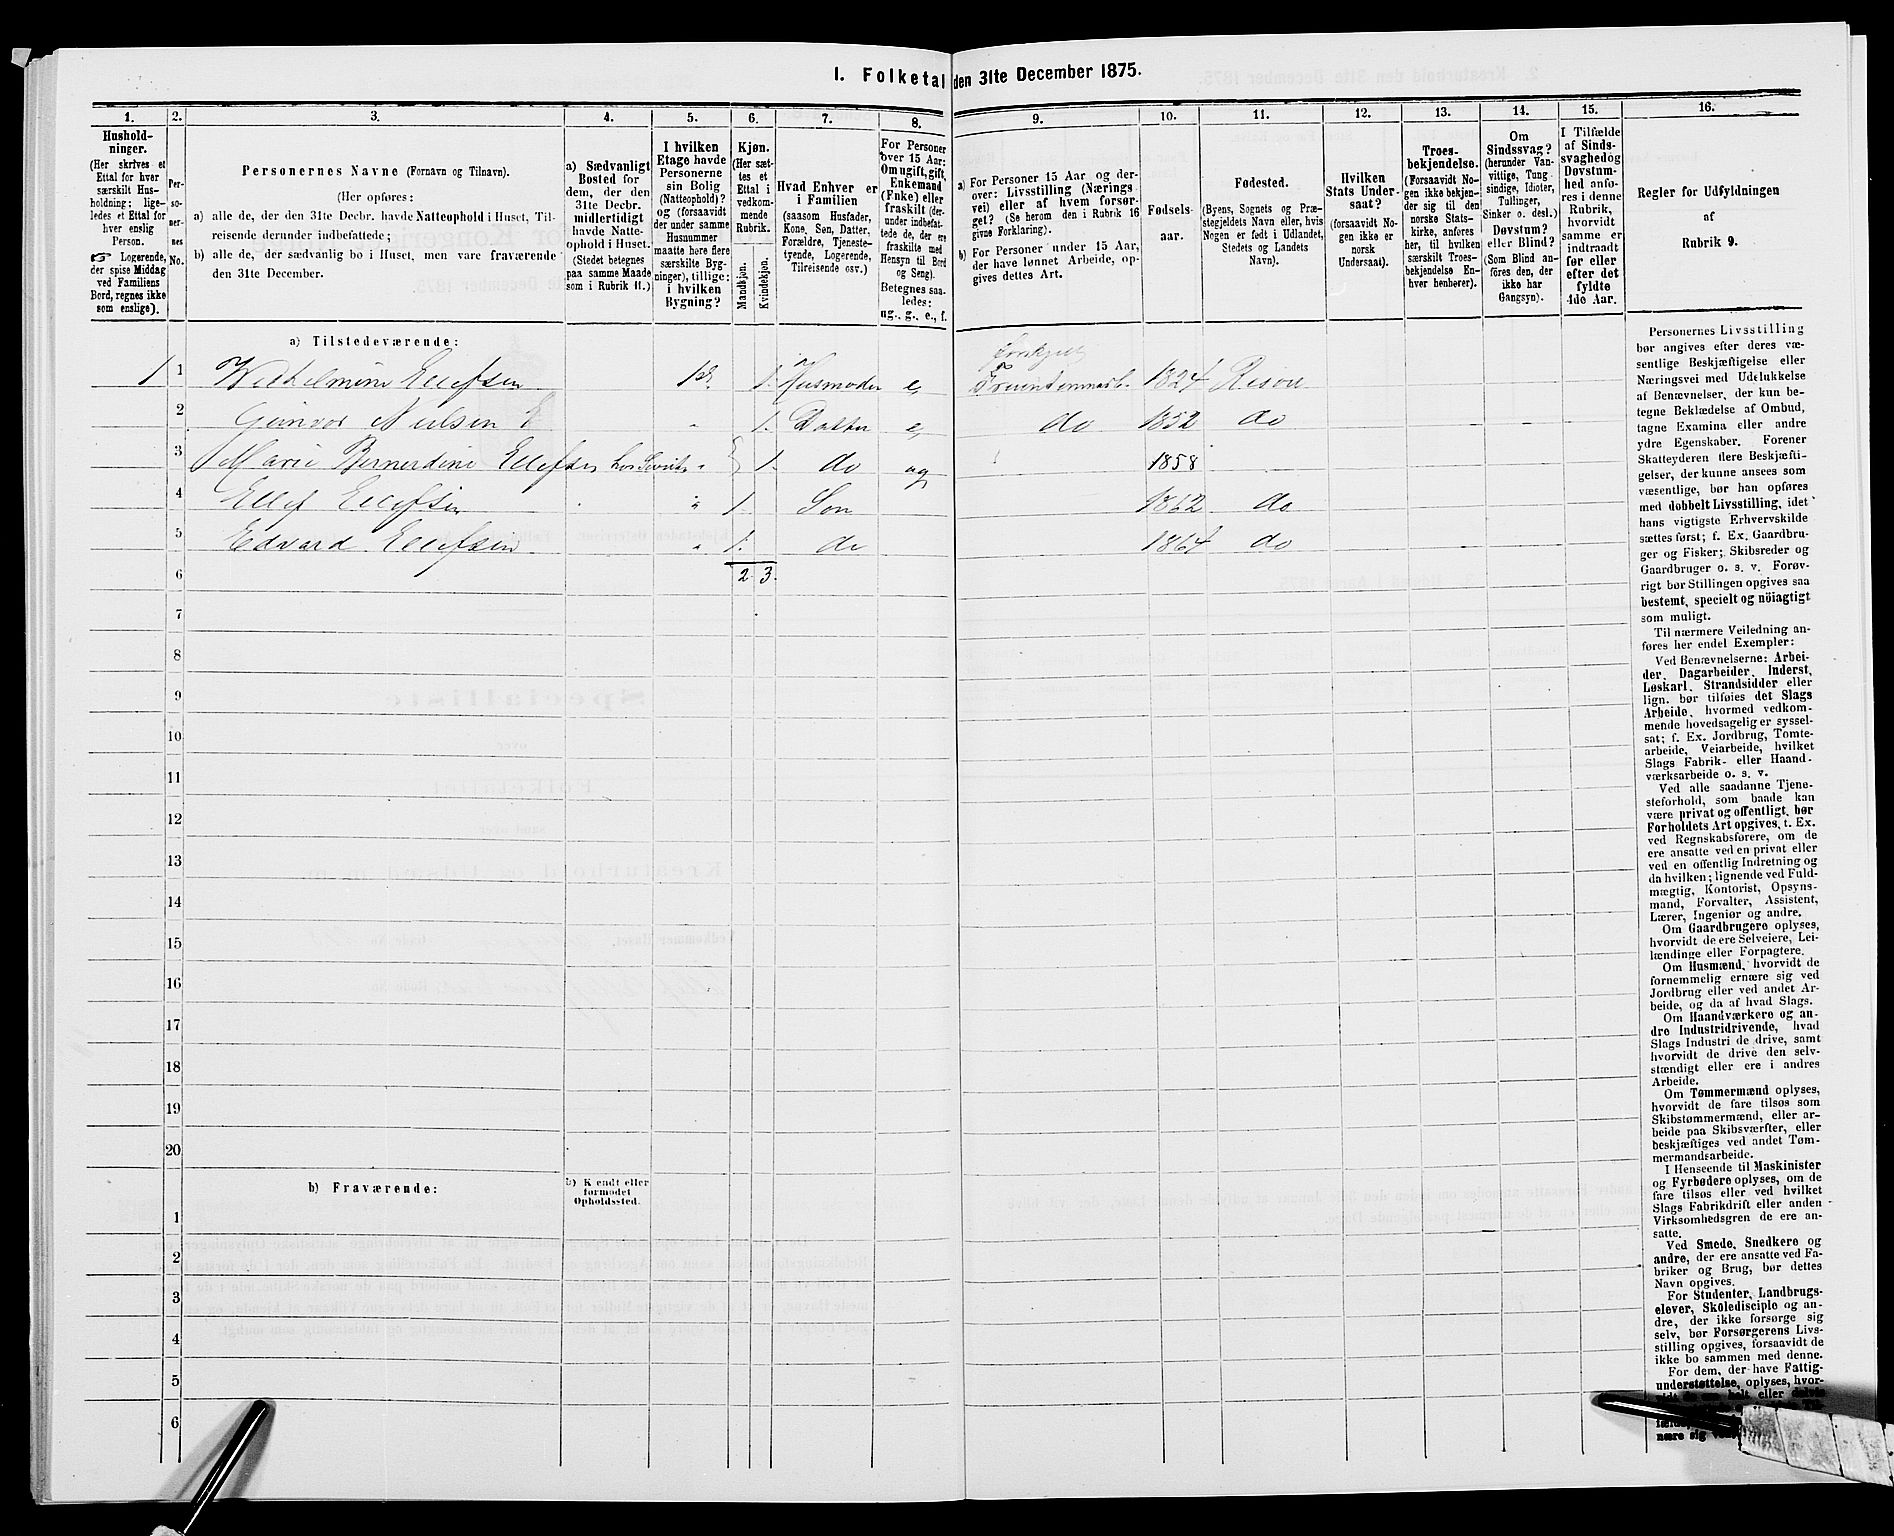 I. Folketal den 31te December 1875.
1. 2. 3. 4. 5. 6. 7. 8. 9. 10. 11. 12. 13. 14. 15. 16.
Hushold-
ninger.
(Her skrives et
Ettal for hver
særskilt Hus-
holdning; lige-
ledes et Ettal for
hver enslig
Person.
☞ Logerende,
der spise Middag
ved Familiens
Bord, regnes ikke
som enslige).
Per-
so-
ner-
nes
No.
Personernes Navne (Fornavn og Tilnavn).
(Her opføres:
a) alle de, der den 31te Decbr. havde Natteophold i Huset, Til-
reisende derunder indbefattede;
b) alle de, der sædvanlig bo i Huset, men vare fraværende
den 31te December.
a) Sædvanligt
Bosted for
dem, der den
31te Decbr.
midlertidigt
havde Natte-
ophold i Huset.
(Stedet betegnes
paa samme Maade
som i Rubrik 11.)
I hvilken
Etage havde
Personerne
sin Bolig
(Natteophold)?
og (forsaavidt
der under samme
Husnummer
maatte høre flere
særskilte Byg-
ninger), tillige:
i hvilken
Bygning?
Kjøn.
(Her sæt-
tes et
Ettal i
vedkom-
mende
Rubrik.
Mandkjøn.
Kvindekjøn.
Hvad Enhver er
i Familien
(saasom Husfader,
Kone, Søn, Datter,
Forældre, Tjeneste-
tyende, Logerende,
Tilreisende osv.)
For Personer
over 15 Aar:
Om ugift, gift,
Enkemand
(Enke) eller
fraskilt (der-
under indbefat-
tede de, der ere
fraskilte med
Hensyn til Bord
og Seng).
Betegnes saa-
ledes:
ug., g., e., f.
a) For Personer 15 Aar og der-
over: Livsstilling (Nærings
vei) eller af hvem forsør-
get? (Se herom den i Rubrik 16
givne Forklaring).
b) For Personer under 15 Aar,
der have lønnet Arbeide, op-
gives dettes Art.
Fødsels-
aar.
Fødested.
(Byens, Sognets og Præ-
stegjeldets Navn eller, hvis
Nogen er født i Udlandet,
Stedets og Landets
Navn).
Hvilken
Stats Under-
saat?
(forsaavidt No-
gen ikke er
norsk
Undersaat).
Troes-
bekjendelse.
(Forsaavidt No-
gen ikke bekjen-
der sig til den
norske Stats-
kirke, anføres
her, til hvilken
særskilt Troes-
bekjendelse En-
hver henhører).
Om
Sindssvag?
(herunder Van-
vittige, Tung
sindige, Idioter,
Tullinger,
Sinker o. desl.)
Døvstum?
eller Blind?
(Som Blind an-
føres den, der
ikke har
Gangsyn).
I Tilfælde
af Sinds-
svaghed og
Døvstum-
hed anfø-
res i denne
Rubrik,
hvorvidt
samme er
indtraadt
før eller
efter det
fyldte
4de Aar.
Regler for Udfyldningen
af
Rubrik 9.
a) Tilstedeværende:
1 1 Wilhelmine Ellefsen 1 Husmoder e, 1824 Risør
2 Gunvor Nielsen E 1. Datter e, do 1852 do
3 Marie Bernerdine Ellefsen 1. do ug 1858
4 Ellef Ellefsen 1. Søn 1862 do
5 Edvard Ellefsen 1. do 1864 do
6 2 3.
7
8
9
10
11
12
13
14
15
16
17
18
19
20
b) Fraværende:
b) Kjendt eller
formodet
Opholdssted.
1
2
3
4
5
6
Personernes Livsstilling
bør angives efter deres væ-
sentlige Beskjæftigelse eller
Næringsvei med Udelukkelse
af Benævnelser, der kun be-
tegne Beklædelse af Ombud,
tagne Examina eller andre
ydre Egenskaber. Forener
Skatteyderen flere Beskjæfti-
gelser, der kunne ansees som
væsentlige, bør han opføres
med dobbelt Livsstilling, idet
hans vigtigste Erhvervskilde
sættes først; f. Ex. Gaardbru-
ger og Fisker; Skibsreder og
Gaardbruger o. s. v. Forøv-
rigt bør Stillingen opgives saa
bestemt, specielt og nöiagtigt
som muligt.
Til nærmere Veiledning an-
føres her endel Exempler:
Ved Benævnelserne: Arbei-
der, Dagarbeider, Inderst,
Løskarl, Strandsidder eller
lign. bør tilføies det Slags
Arbeide, hvormed vedkom-
mende hovedsagelig er syssel-
sat; f. Ex. Jordbrug, Tomte-
arbeide, Veiarbeide, hvilket
Slags Fabrik- eller Haand-
værksarbeide o. s. v.
Ved alle saadanne Tjene-
steforhold, som baade kan
være privat og offentligt, bør
Forholdets Art opgives, t. Ex.
ved Regnskabsførere, om de
ere ansatte ved en privat eller
ved en offentlig Indretning og
da hvilken; lignende ved Fuld-
mægtig, Kontorist, Opsyns-
mand, Forvalter, Assistent,
Lærer, Ingeniør og andre.
Om Gaardbrugere oplyses,
hvorvidt de ere Selveiere, Lei-
lændinge eller Forpagtere.
Om Husmænd, hvorvidt de
fornemmelig ernære sig ved
Jordbrug eller ved andet Ar-
beide, og da af hvad Slags.
Om Haandværkere og an-
dre Industridrivende, hvad
Slags Industri de drive, samt
hvorvidt de drive den selv-
stændigt eller ere i andres
Arbeide.
Om Tømmermænd oplyses,
hvorvidt de fare tilsøs som
Skibstømmermænd, eller ar-
beide paa Skibsværfter, eller
beskjæftiges ved andet Tøm-
mermandsarbeide.
I Henseende til Maskinister
og Fyrbødere oplyses, om de
fare tilsøs eller ved hvilket
Slags Fabrikdrift eller anden
Virksomhedsgren de ere an-
satte.
Ved Smede, Snedkere og
andre, der ere ansatte ved Fa-
briker og Brug, bør dettes
Navn opgives.
For Studenter, Landbrugs-
elever, Skoledisciple og an-
dre, der ikke forsørge sig
selv, bør Forsørgerens Livs-
stilling opgives, forsaavidt de
ikke bo sammen med denne.
For dem, der have Fattig-
understøttelse, oplyses, hvor-